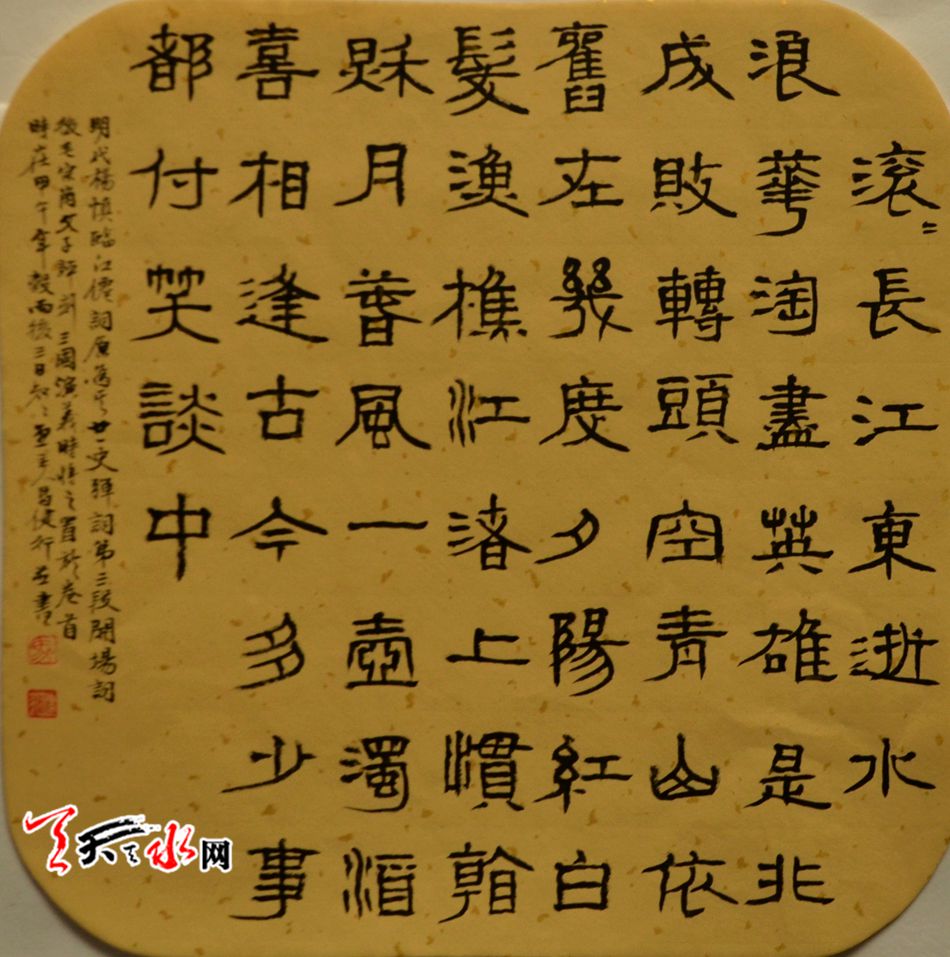 滚〻長江東逝水
浪華淘盡英雄是非
成敗轉頭空青山依
舊在幾度夕陽紅白
髮漁樵江渚上慣看
秌月萅風一壺濁酒
喜相逢古今多少事
都付笑談中
明代楊慎臨江僊詞原為其廿一史彈詞第三段開場詞
後毛宗崗父子評刻三國演義時將之置於卷首
時在甲午年穀雨後三日知〻主人昌健行並書
天天水网